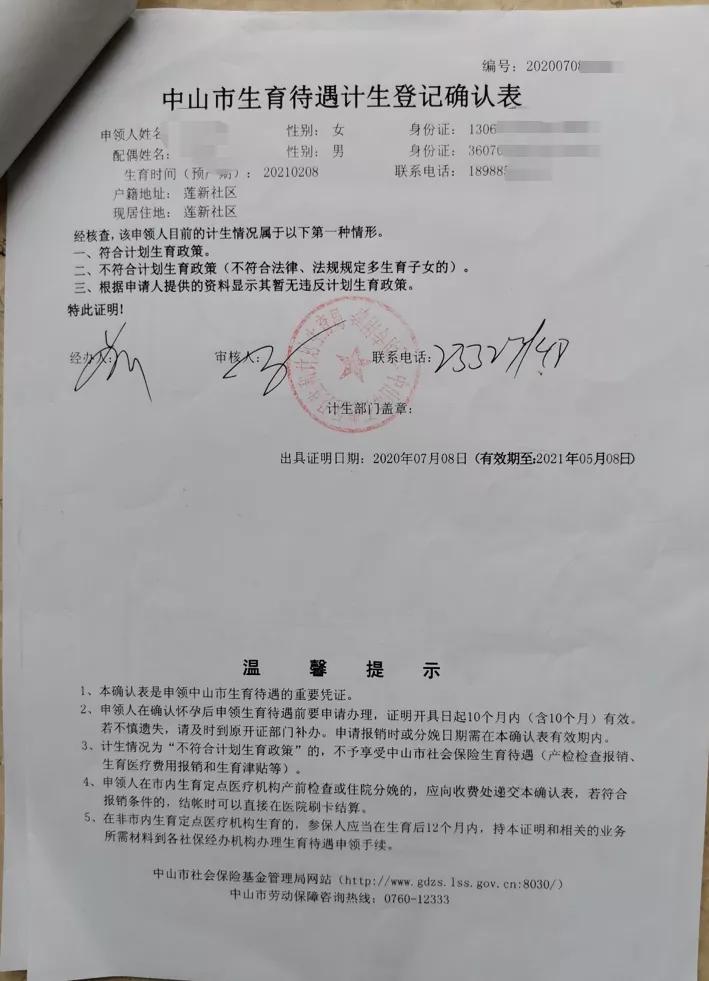 编号：20200708
中山市生育待遇计生登记确认表
申领人姓名 性别：女 身份证：1306
配偶姓名： 性别：男 身份证：3607
生育时间（预产期）：20210208 联系电话：18988
户籍地址：莲新社区
现居住地：莲新社区
经核查，该申领人目前的计生情况属于以下第一种情形。
一、符合计划生育政策。
二、不符合计划生育政策（不符合法律、法规规定多生育子女的）。
三、根据申请人提供的资料显示其暂无违反计划生育政策。
特此证明！
经办人： 审核人： 联系电话：23327148
计生部门盖章：
出具证明日期：2020年07月08日（有效期至:2021年05月08日）
温馨提示
1、本确认表是申领中山市生育待遇的重要凭证。
2、申领人在确认怀孕后申领生育待遇前要申请办理，证明开具日起10个月内（含10个月）有效。
若不慎遗失，请及时到原开证部门补办。申请报销时或分娩日期需在本确认表有效期内。
3、计生情况为“不符合计划生育政策”的，不予享受中山市社会保险生育待遇（产检检查报销、
生育医疗费用报销和生育津贴等）。
4、申领人在市内生育定点医疗机构产前检查或住院分娩的，应向收费处递交本确认表，若符合
报销条件的，结帐时可以直接在医院刷卡结算。
5、在非市内生育定点医疗机构生育的，参保人应当在生育后12个月内，持本证明和相关的业务
所需材料到各社保经办机构办理生育待遇申领手续。
中山市社会保险基金管理局网站（http://www.gdzs.lss.gov.cn:8030/）
中山市劳动保障咨询热线：0760-12333